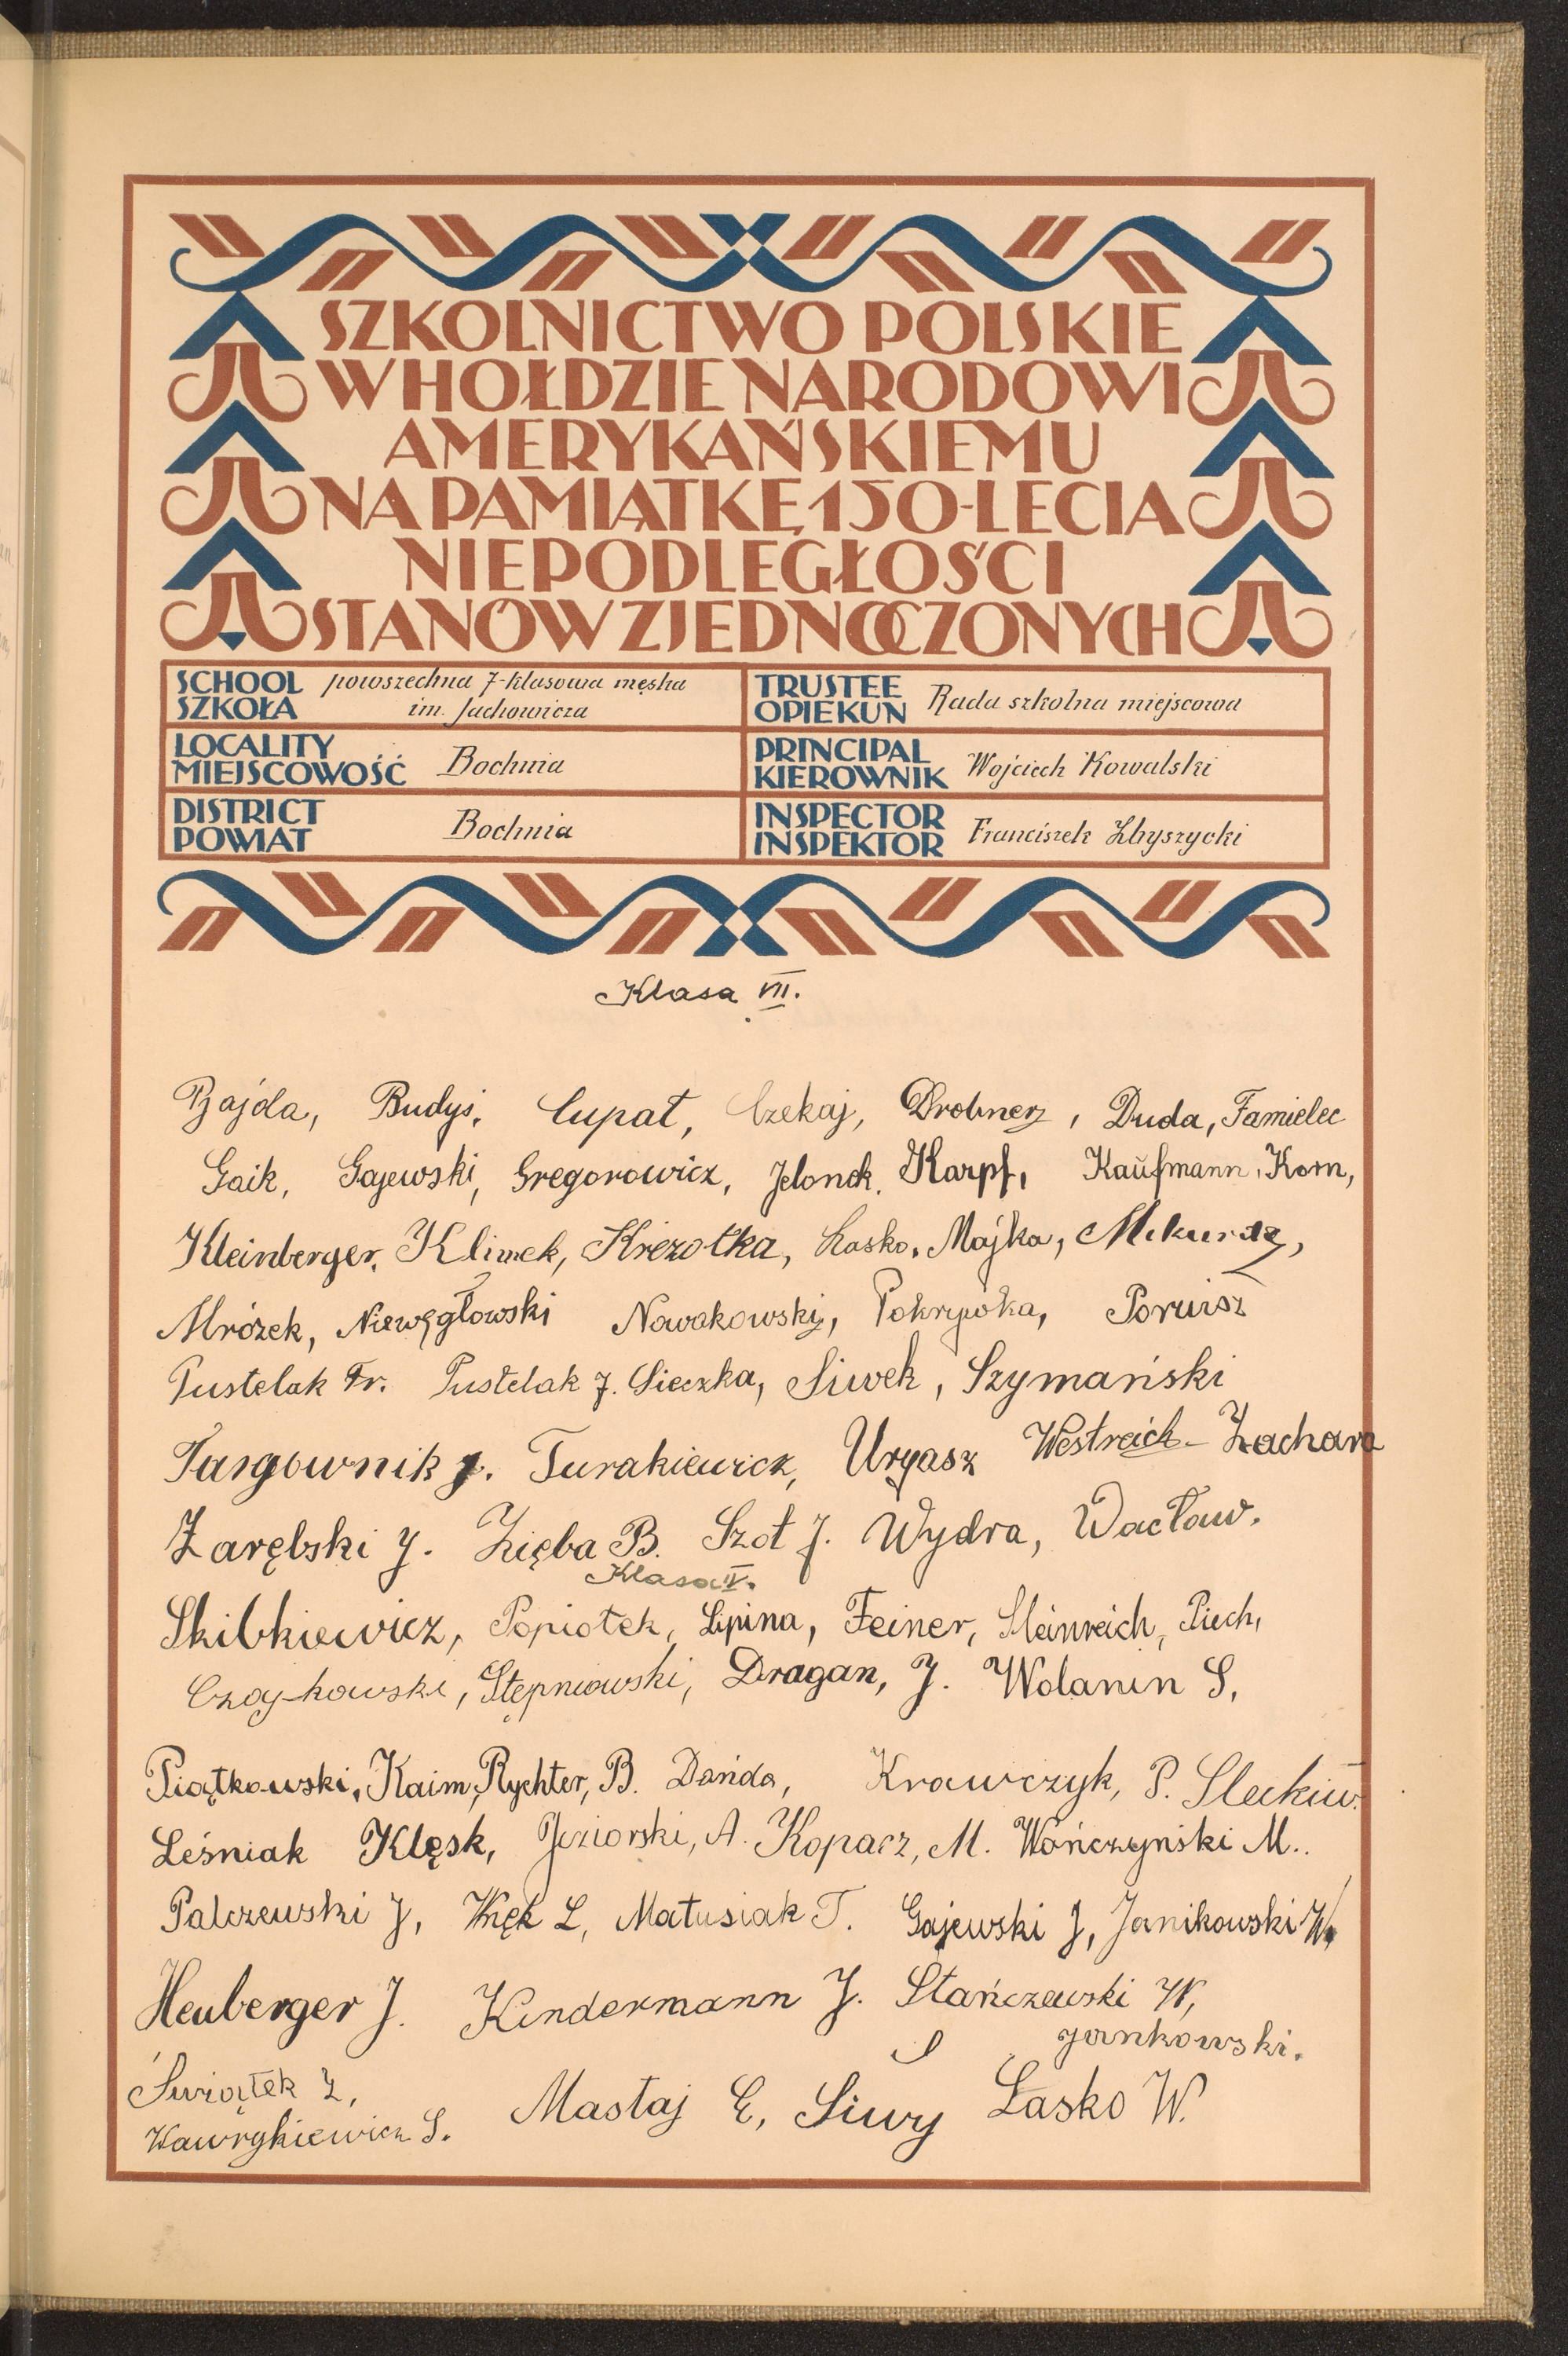 SZKOLNICTWO POLSKIE
W HOŁDZIE NARODOWI
AMERYKAŃSKIEMU
NA PAMIĄTKĘ 150-LECIA
NIEPODLEGŁOŚCI
STANÓW ZJEDNOCZONYCH
SCHOOL powszechna 7-klasowa męska
SZKOŁA im. Jachowicza
TRUSTEE
OPIEKUN Rada szkolna miejscowa
LOCALITY
MIEJSCOWOŚĆ Bochnia
PRINCIPAL
KIEROWNIK Wojciech Kowalski
DISTRICT
POWIAT Bochnia
INSPECTOR
INSPEKTOR Franciszek Zbyszycki
Klasa VII.
Bajda, Budyś, Cupał, Czekaj, Drobner, Duda, Famielec
Gaik, Gajewski, Gregorowicz, Jelonek, Karpf, Kaufmann, Korn,
Kleinberger, Klimek, Krezołka, Łasko, Majka,
Mrózek, Niewęgłowski Nowakowski, Pokrywka, Poruisz
Pustelak Fr. Pustelak J. Sieczka, Siwek, Szymański
Targownik J. Turakiewicz, Uryasz Westreich - Zachara
Zarębski J. Zięba B. Szot J. Wydra, Wacław.
Klasa V.
Skibkiewicz, Popiołek, Lipina, Feiner, Steinreich, Piech,
Czajkowski, Stępniowski, Dragan, J. Wolanin S,
Piątkowski, Kaim, Rychter, B. Dańda, Krawczyk, P.
Leśniak Klęsk, Jeziorski, A. Kopacz, M. Wończyński M..
Palczewski J, Kręk L, Matusiak T. Gajewski J, Janikowski W,
Heuberger J. Kindermann J. Stańczewski W,
Jankowski.
Świątek Z,
Mastaj E, Siwy Łasko W.
Wawrykiewicz S.